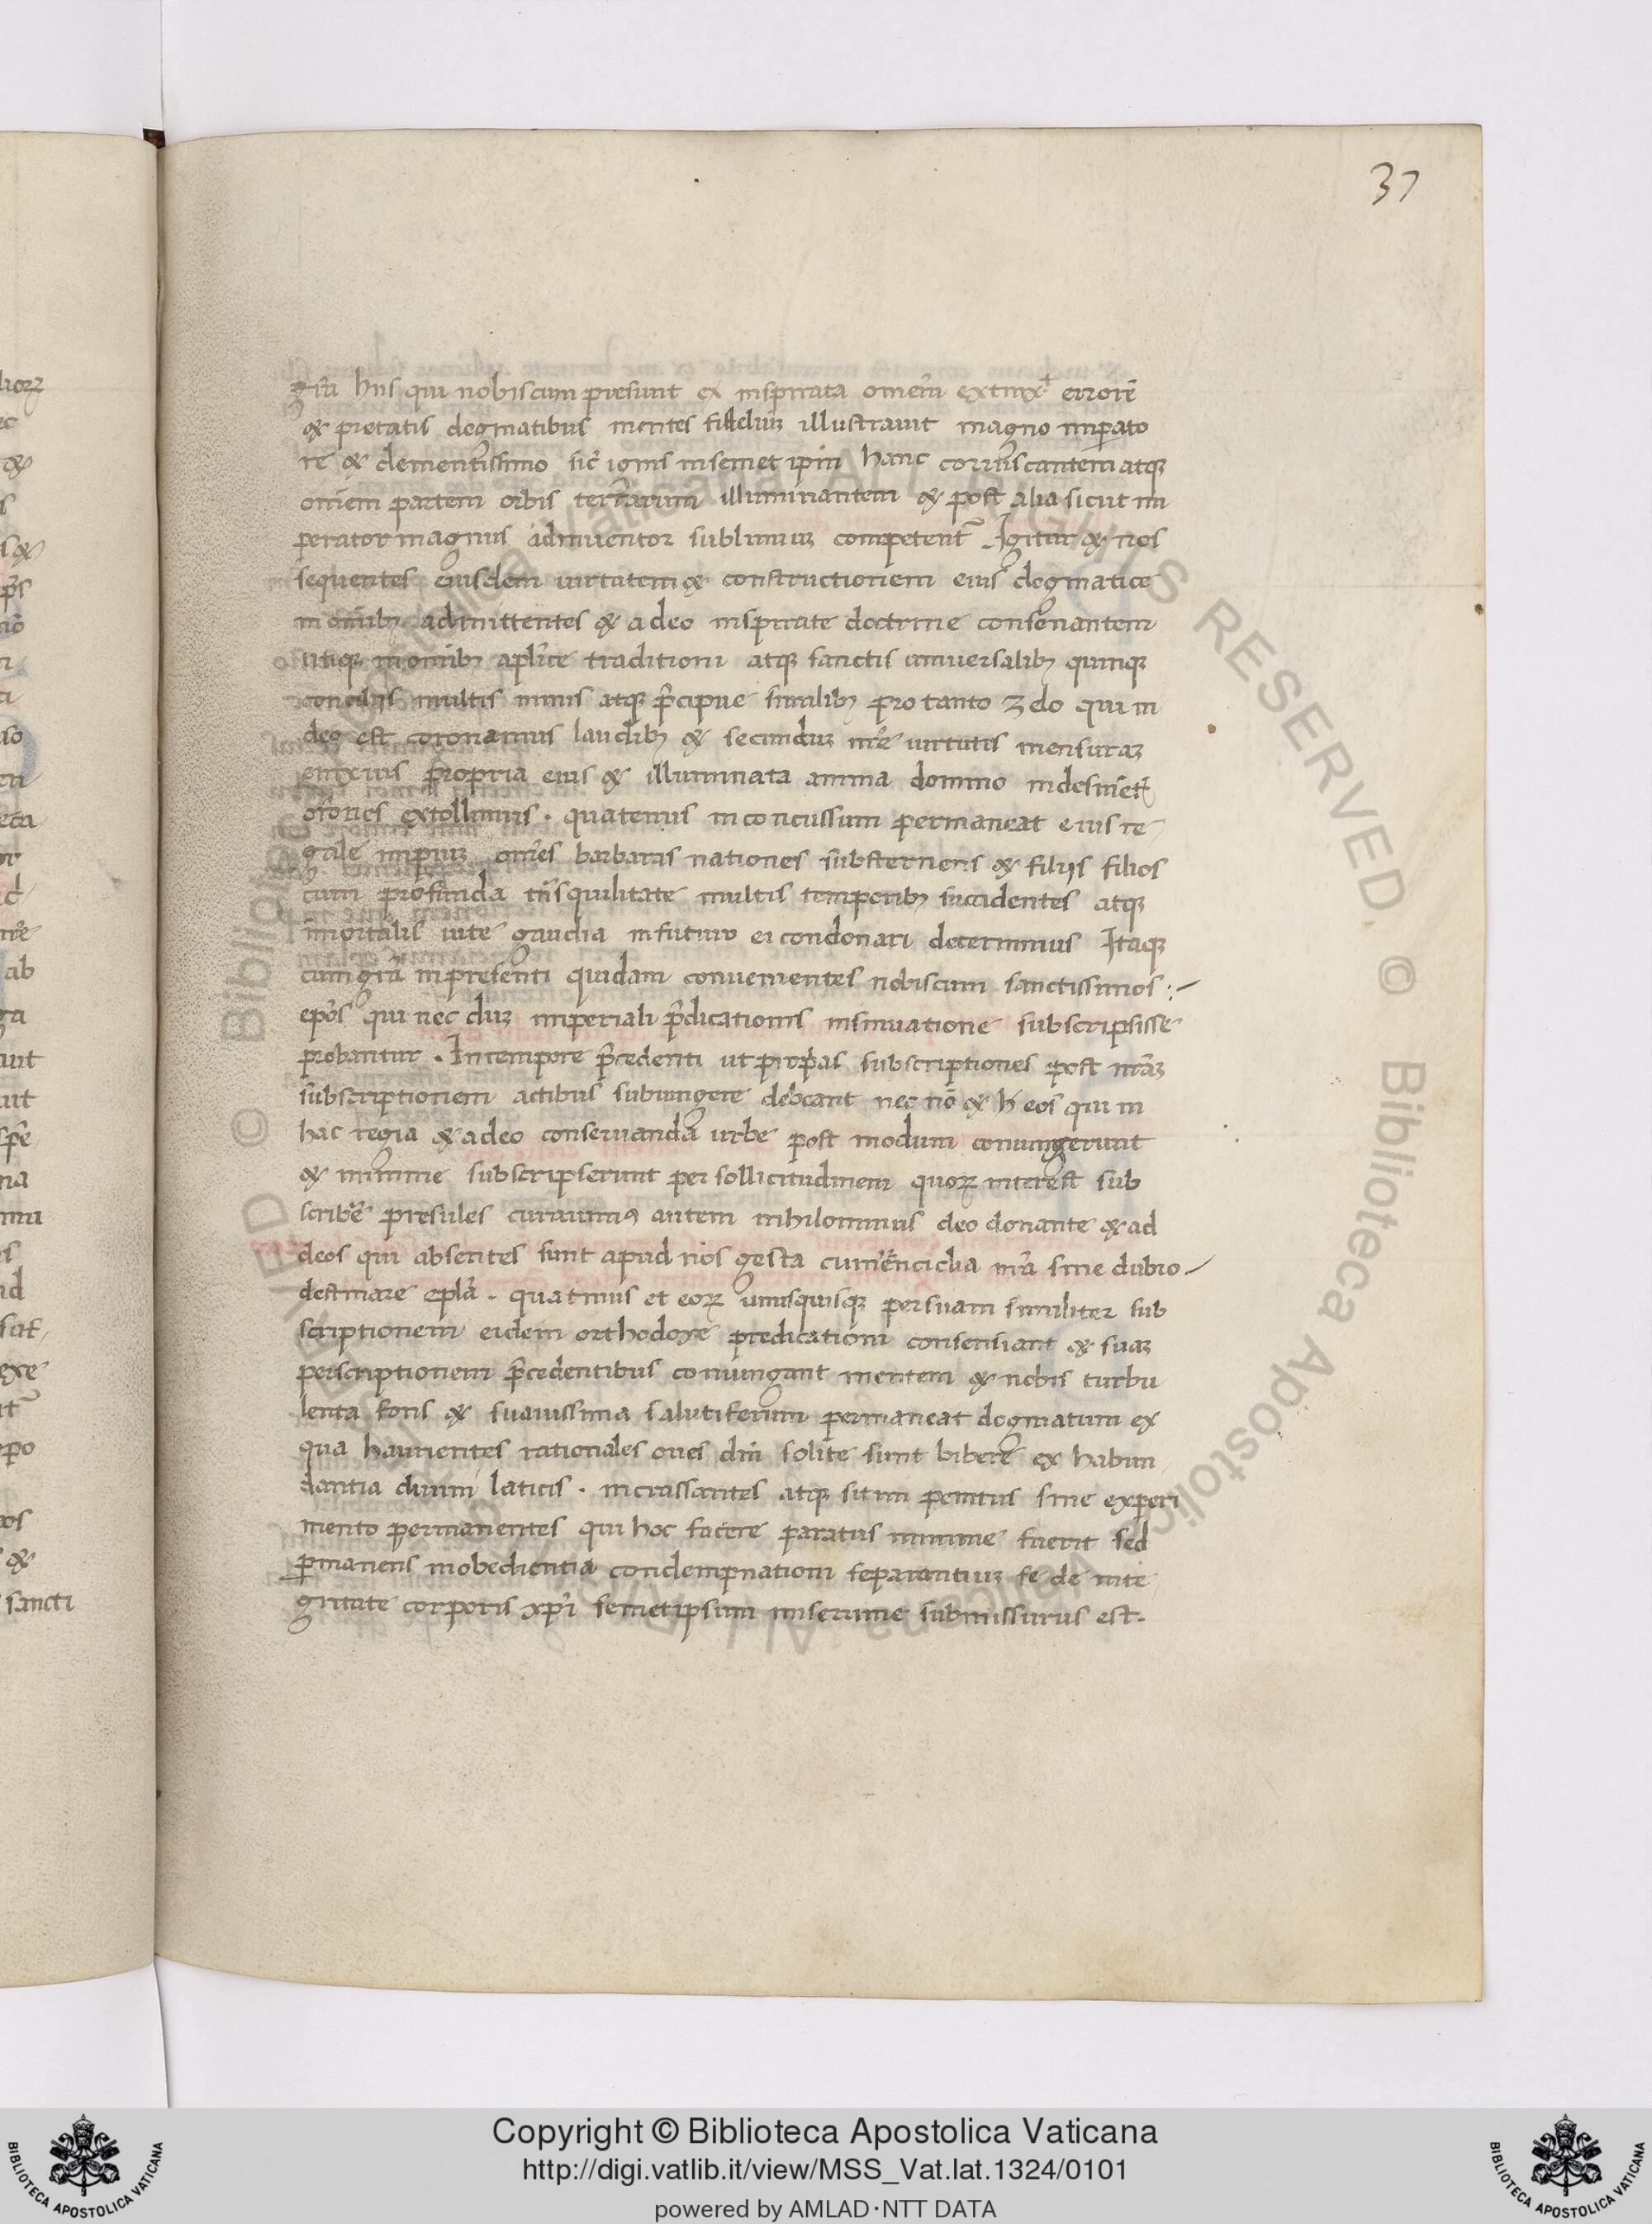 37
gr̄a hiis qui nobiscum presunt ex inspirata omēm extinx̄ errorē
& pietatis dogmatibus mentes fideliuʒ illustrauit magno imꝑato
re & clementissimo sic̄ ignis insemet ip̄m hanc corruscantem atqꝫ
omēm partem orbis terrarum illuminantem & post alia sicut im
perator magnus adinuentor sublimiuʒ competent̄ . Igitur & nos
sequentes eiusdem uirtutem & constructionem eius dogmatice
in omībꝫ admittentes & a deo inspirate doctrine consonantem
utiqꝫ in omībꝫ aplīce traditioni atqꝫ sanctis uniuersalibꝫ quinqꝫ
concilijs multis nimis atqꝫ p̄cipue similibꝫ pro tanto zelo qui in
deo est coronamus laudibꝫ & secunduʒ nr̄e uirtutis mensuraʒ
enixius propria eius & illuminata anima domino indesinēt̄
orōnes extollimus . quatenus inconcussum permaneat eius re
gale imperiuʒ omēs barbaras nationes substernens & filijs filios
cum profunda tn̄squilitate multis temporibꝫ succidentes atqꝫ
īmortalis uite gaudia in futuro ei condonari determinus Itaqꝫ
cum gr̄a in presenti quidam conuenientes nobiscum sanctissimos :~
ep̄os qui nec duʒ imperiali p̄dicationis insinuatione subscripsisse
probantur . In tempore p̄cedenti ut propias subscriptiones post nr̄aʒ
subscriptionem actibus subiungere debeant nec nō & h̄ eos qui in
hac regia & a deo conseruanda urbe post modum coniungerunt
& minime subscripserunt per sollicitudinem quoꝝ interest sub
scribēre presules curauimꝰ autem nihilominus deo donante & ad
deos qui absentes sunt apud nos gesta cum enciclia nr̄a sine dubio ~
destinare epl̄a . quatinus et eoꝝ unusquisqꝫ per suam similiter sub
scriptionem eidem orthodoxe predicationi consensiant & suaʒ
perscriptionem p̄cedentibus coniungant mentem & nobis turbu
lenta fons & suauissima salutiferum permaneat dogmatum ex
qua haurientes rationales oues dn̄i solite sunt bibere ex habun
dantia diuini laticis . incrassantes atqꝫ sitim penitus sine experi
mento permanentes qui hoc facere paratus minime fuerit sed
ꝑmanens inobedientia condempnationi separantiuʒ se de inte
gritate corporis xp̄i semetipsum miserrime submissurus est .
Copyright © Biblioteca Apostolica Vaticana
http://digi.vatlib.it/view/MSS_Vat.lat.1324/0101
powered by AMLAD·NTT DATA